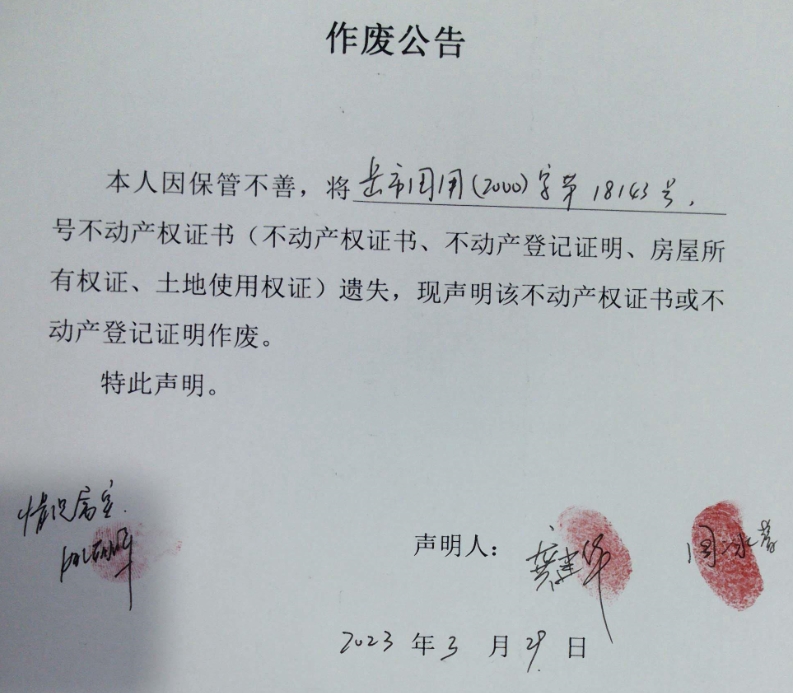 作废公告
本人因保管不善，将岳市国用(2000)字第18143号，
号不动产权证书（不动产权证书、不动产登记证明、房屋所
有权证、土地使用权证）遗失，现声明该不动产权证书或不
动产登记证明作废。
特此声明。
情况属实.
声明人： 龚建华 周冰蓉
2023年3月29日